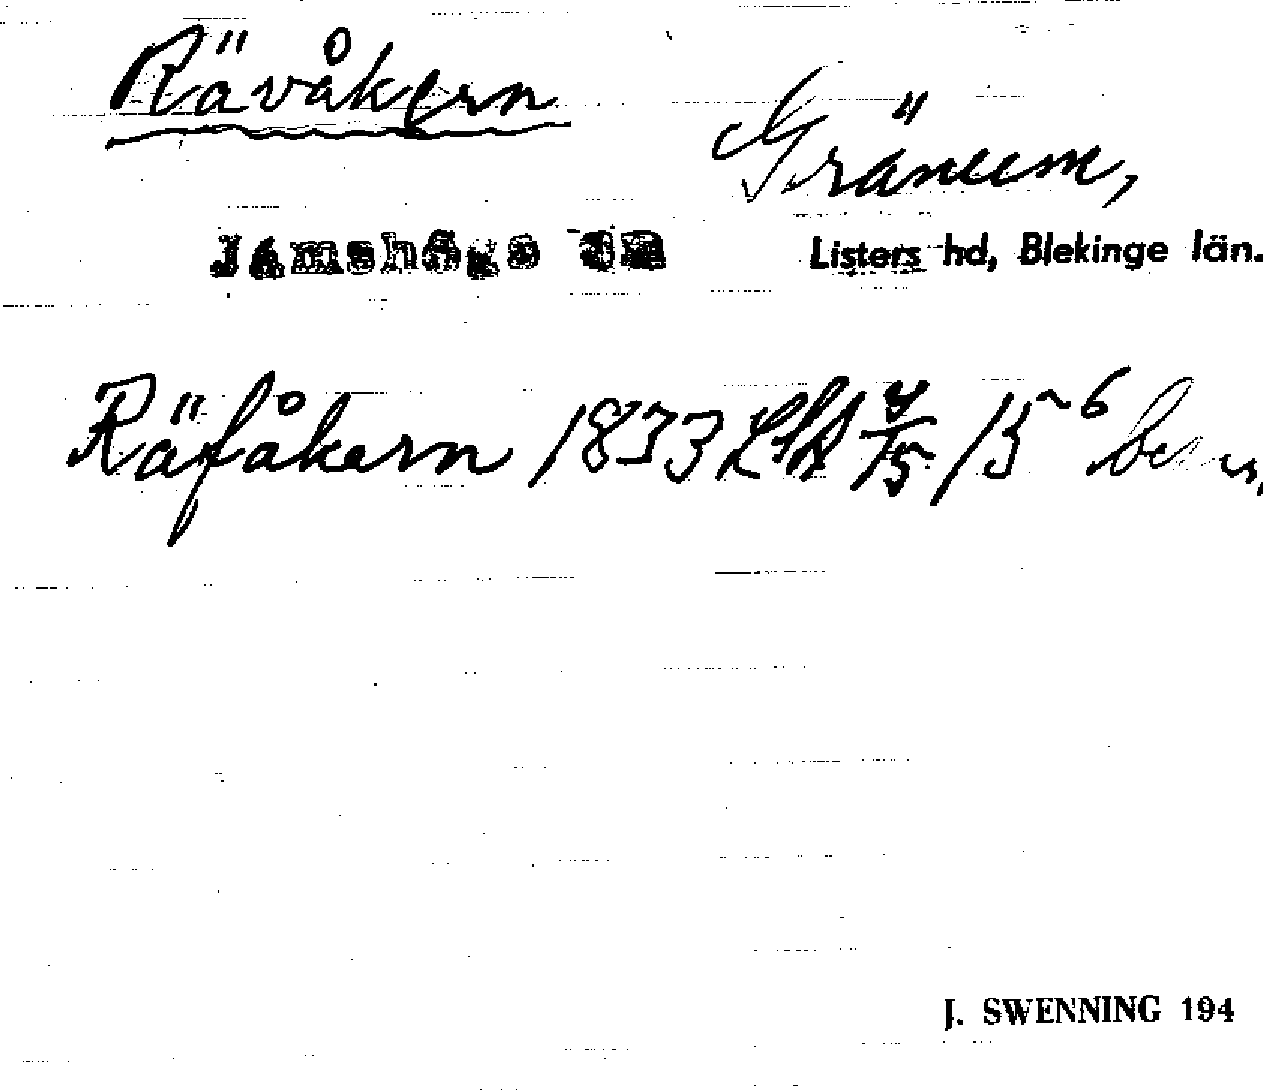 Rävåkern
Gränum,
Jämshögs sn Listers hd, Blekinge län.
Räfåkern 1833 LSA 4/5 15-6
J. SWENNING 194